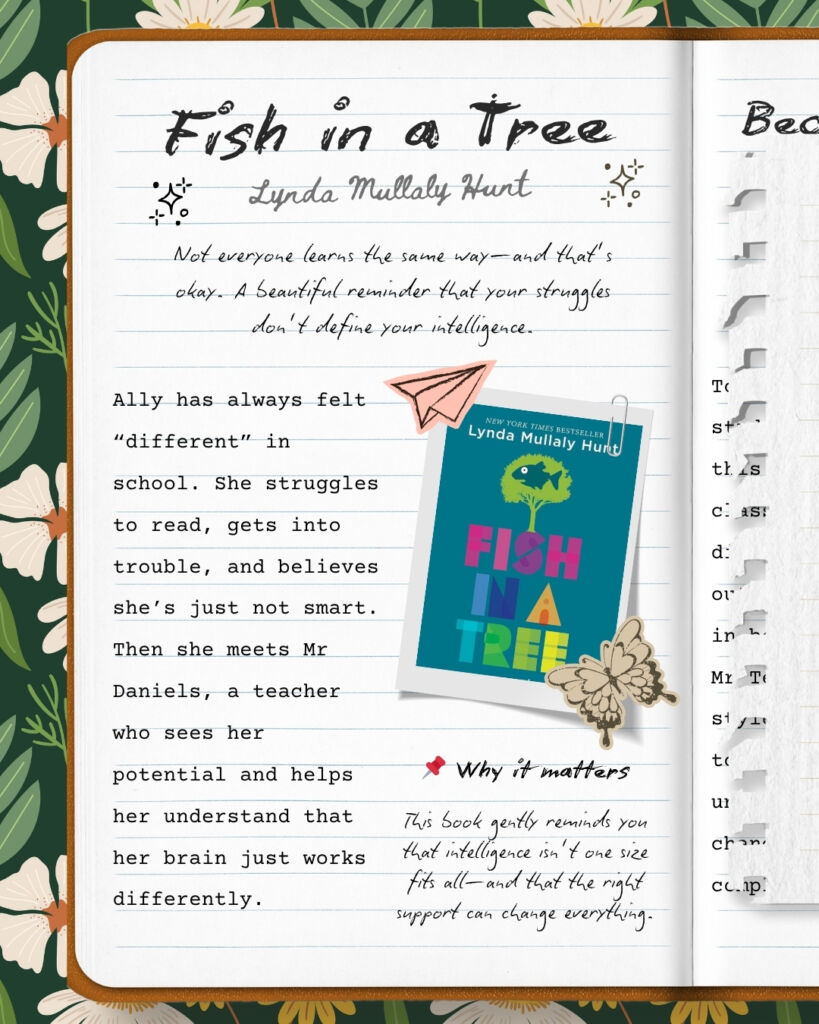 Fish in a Tree
Lynda Mullaly Hunt
Not everyone learns the same way—and that's
okay. A beautiful reminder that your struggles
don't define your intelligence.
Ally has always felt
“different” in
school. She struggles
to read, gets into
trouble, and believes
she’s just not smart.
Then she meets Mr
Daniels, a teacher
who sees her
potential and helps
her understand that
her brain just works
differently.
NEW YORK TIMES BESTSELLER
Lynda Mullaly Hunt
FISH
IN A
TREE
Why it matters
This book gently reminds you
that intelligence isn't one size
fits all—and that the right
support can change everything.
Mr